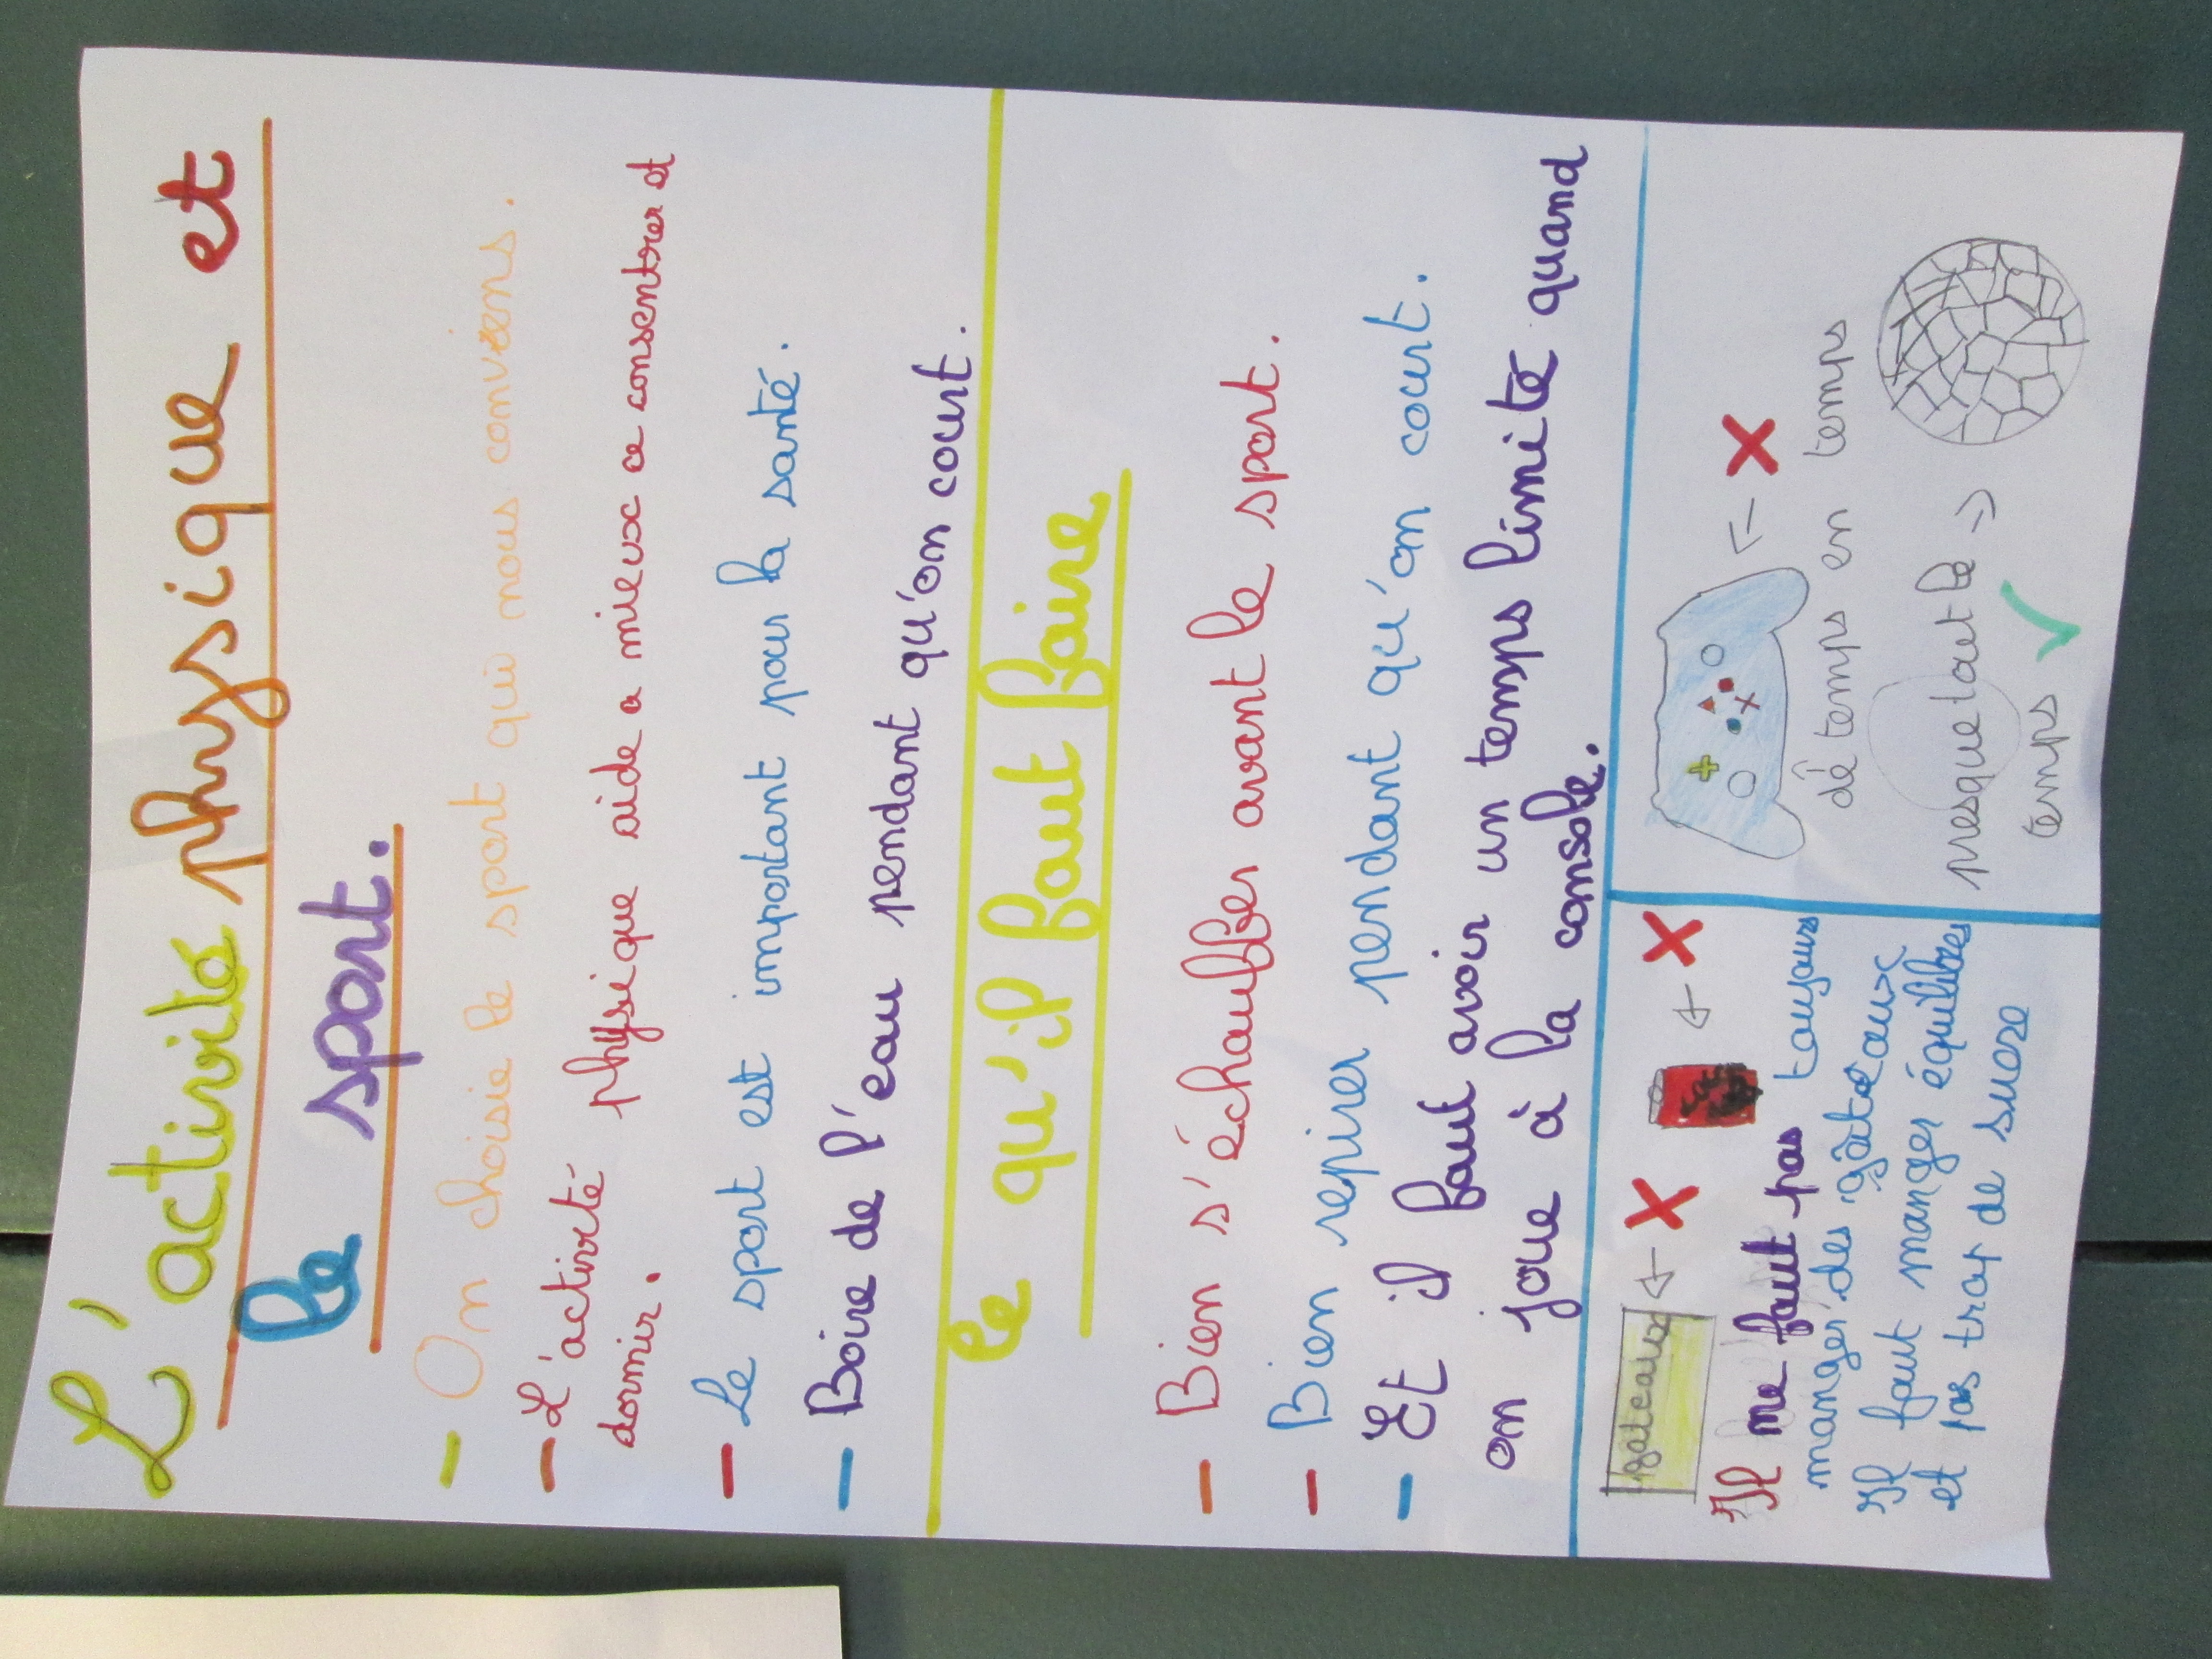 L'activité physique et
le sport.
- On choisie le sport qui nous conviens.
- L'activité physique aide a mieux ce consentrer et
dormir.
- Le sport est important pour la santé.
- Boire de l'eau pendant qu'on court.
le qu'il faut faire
- Bien s'échauffer avant le sport.
- Bien repirer pendant qu'on court.
- Et il faut avoir un temps limité quand
on joue à la console.
gateaux
Il ne faut pas toujours
manger des gâteaux
Il faut manger équilibrer
et pas trop de sucre
de temps en temps
presque tout le
temps